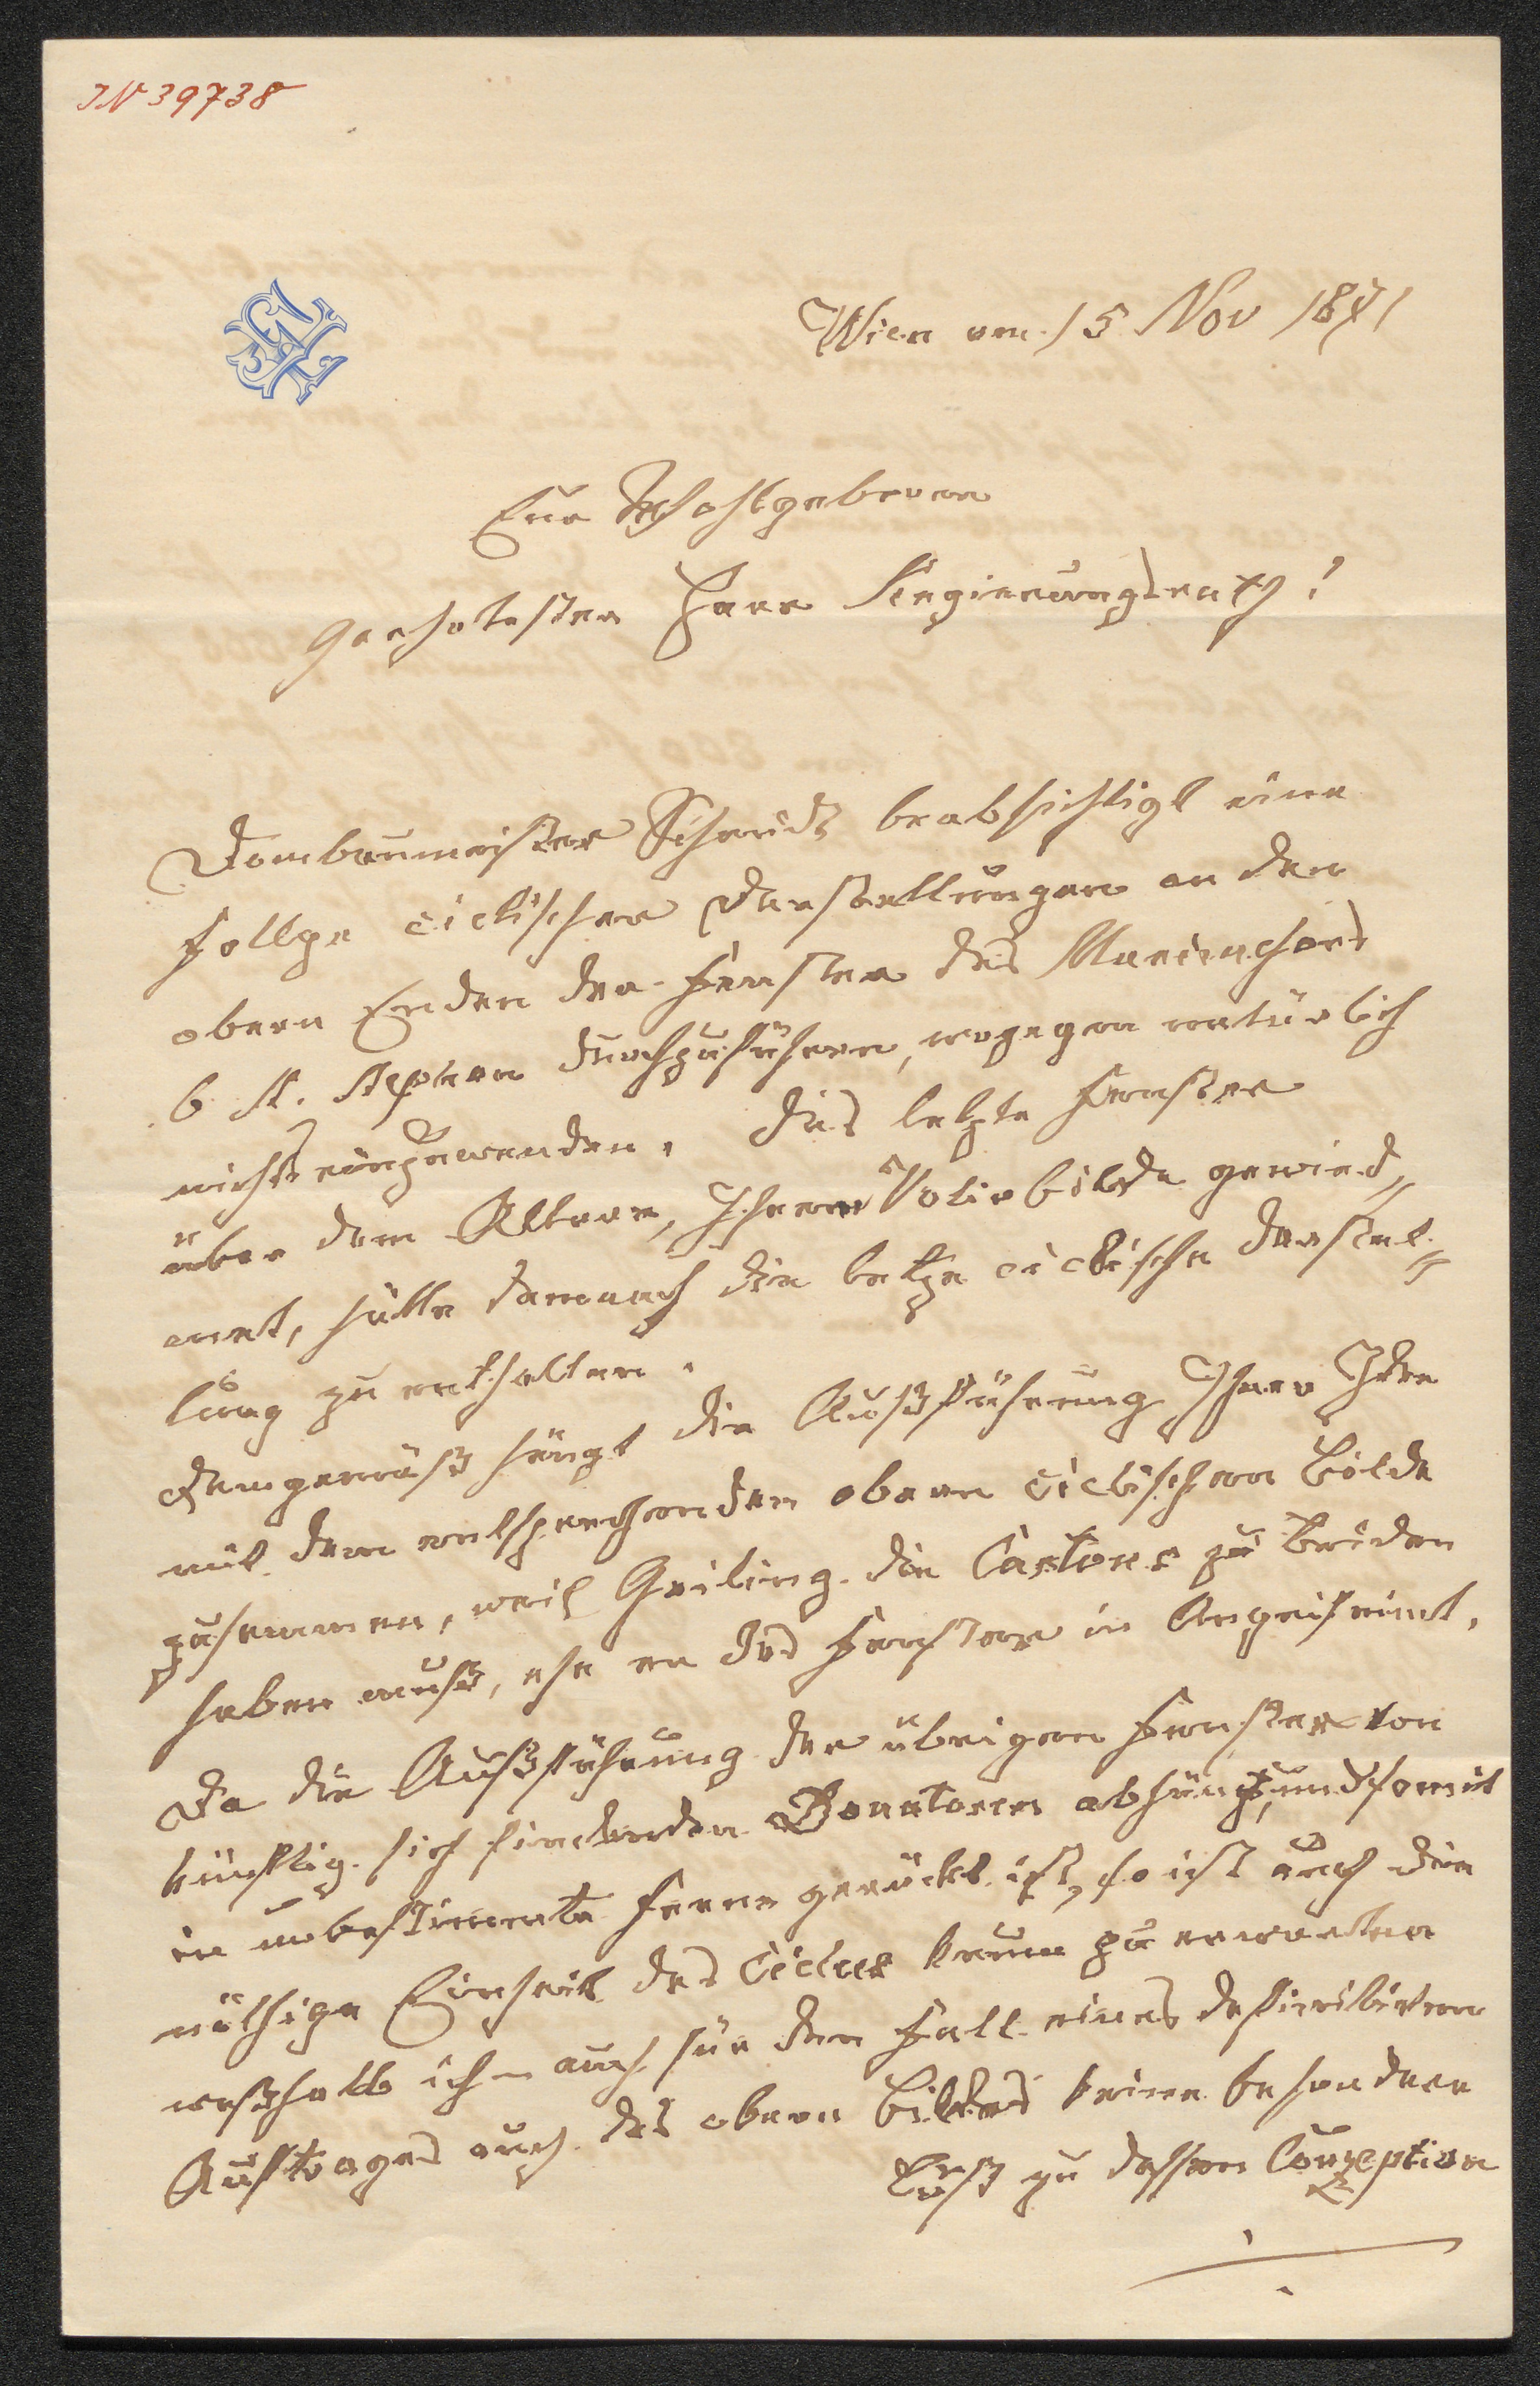 JN 39738
Wien am 15 Nov 1871
Eur Wohlgeboren
geehrtester Herr Regierungsrath!
Dombaumeister Schmidt beabsichtigt eine
Follge ciclischer Darstellungen an den
obern Enden der Fenster des Marienchors
b. St. Stephan durchzuführen, wogegen natürlich
nichts einzuwenden. Das letzte Fenster
über dem Altare, Ihrem Votivbilde gewied„
met, hätte demnach die letzte ciclische Darstel„
lung zu enthalten.
Demgemäß hängt die Außführung Ihrer Idee
mit dem entsprechenden obern ciclischen Bilde
zusammen, weil Geiling die Cartons zu beiden
haben muß, ehe er das Fenster in Angrif nimt.
Da die Außführung der übrigen Fenster von
künftig sich findenden Donatoren abhängt, und somit
in unbestimmte Ferne gerückt ist, so ist auch die
nöthige Einheit des Ciclus kaum zu erwarten
weßhalb ich auch für den Fall eines definitiven
Auftrages auch des obern Bildes keine besondere
Lust zu dessen Conzeption